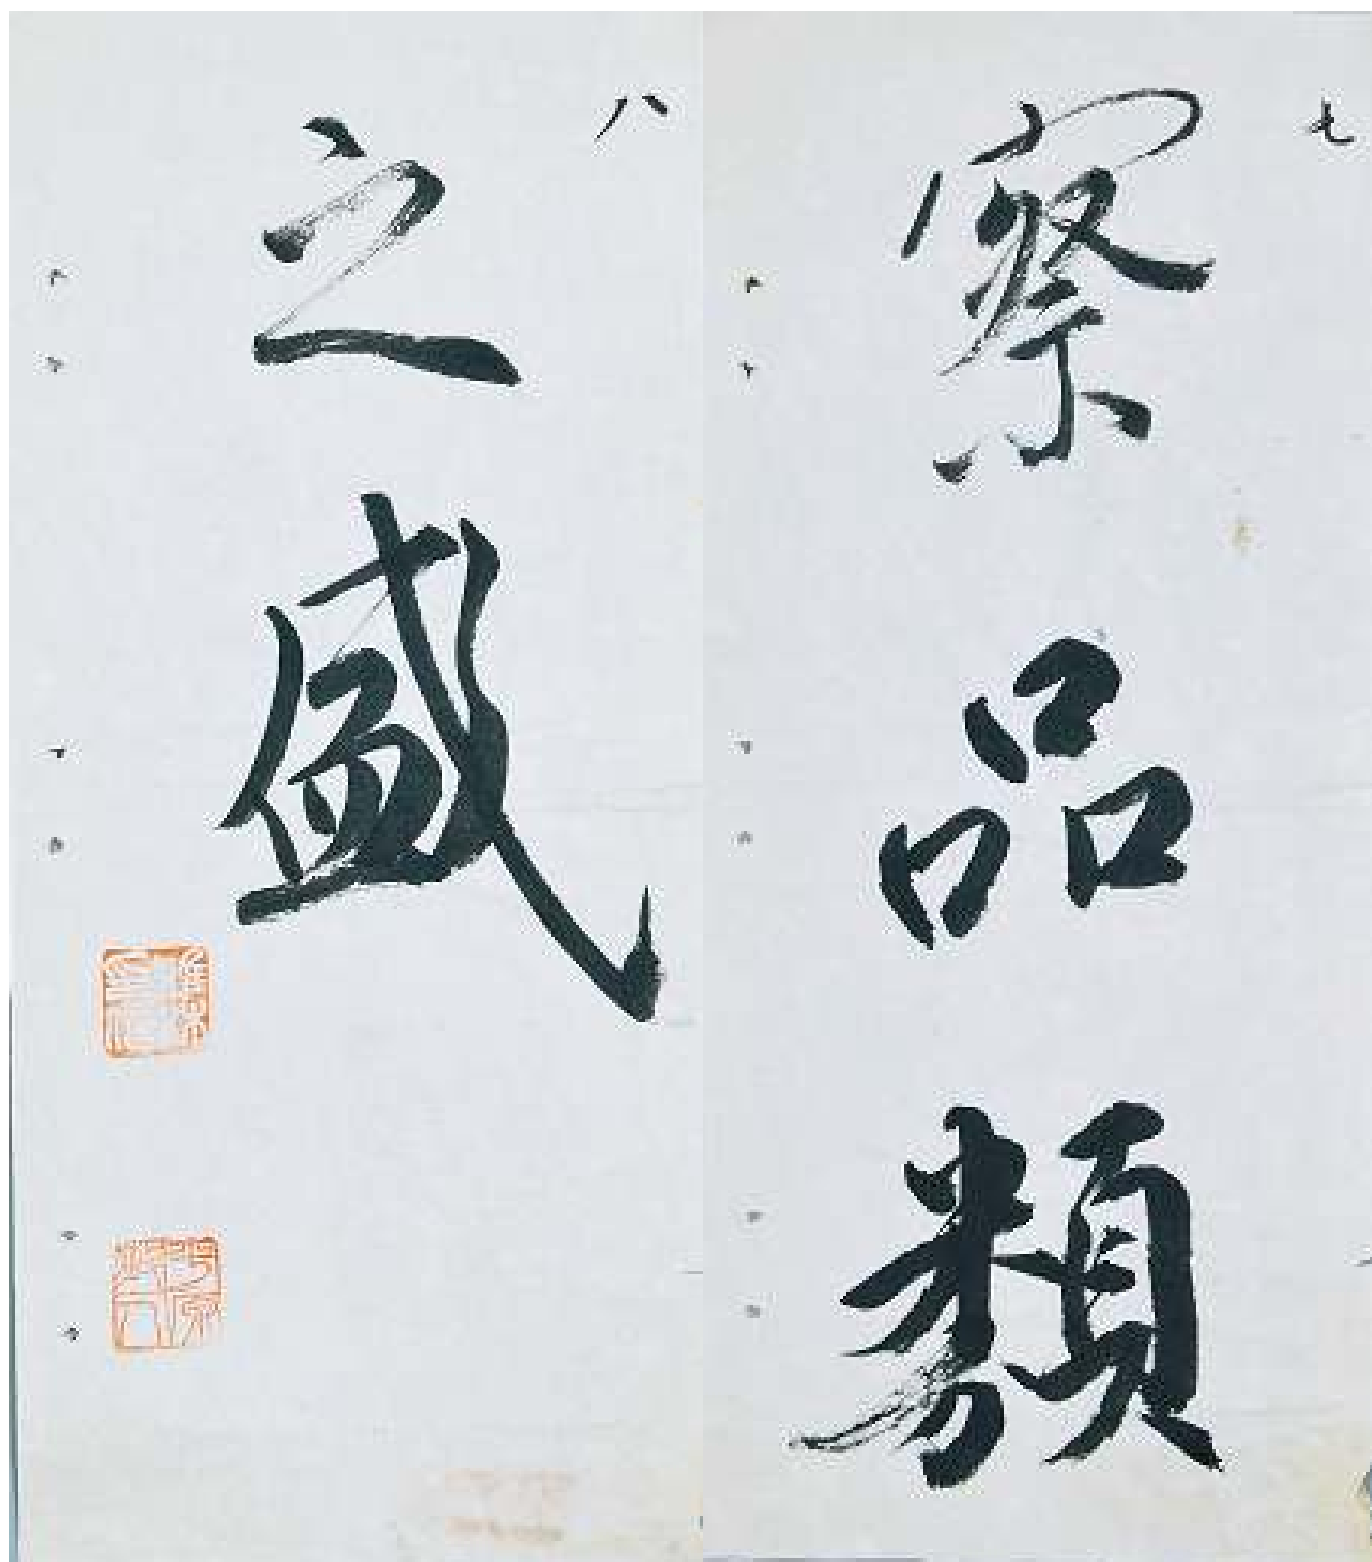 七
察品類
八
之盛